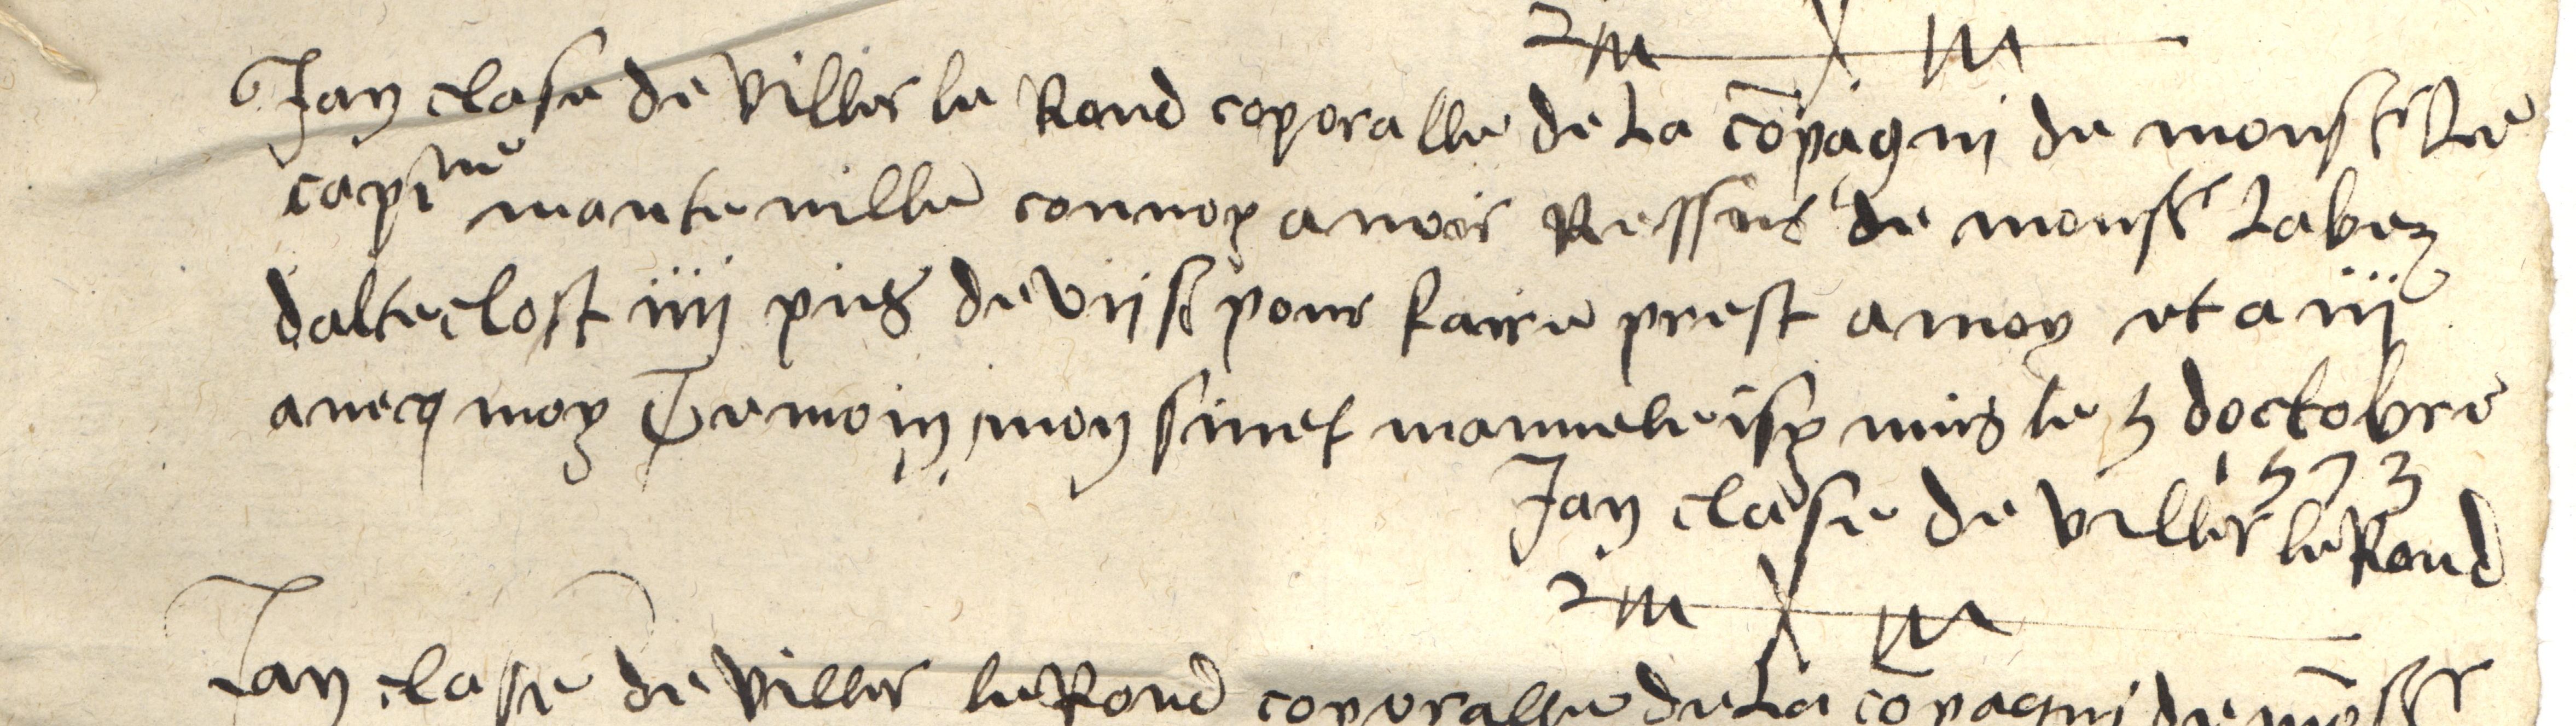 Jan clase de viller le Rond coporalle de La cōpagni de monsr Le
capne manteuille connoy auoir Ressus de monsr Labez
dalteclost iiij pies de vij s pour faire prest a moy et a iij
aueq moy Temoin moy sinet manuele isy mis le 5 doctobre
1573
Jan clase de viller le Rond
Jan clase de viller le Rond coporalle de La cōpagni de mōsr